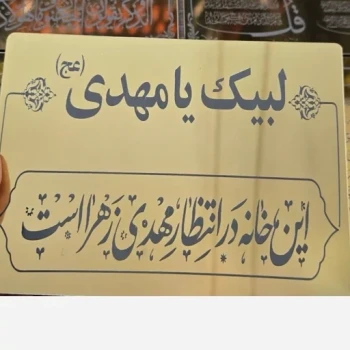 لبیک یا مهدی (عج)
این خانه در انتظار مهدی زهرا است